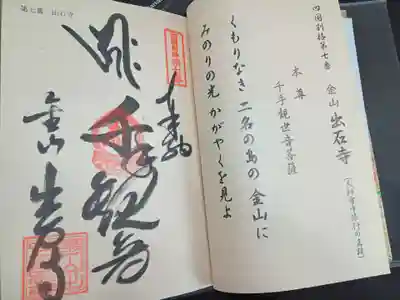 四国別格第七番
金山 出石寺
本尊
千手観世音菩薩
くもりなき 二名の島の 金山に
みのりの光 かがやくを見よ
第七番 出石寺
奉納
千手観音
金山
出石寺